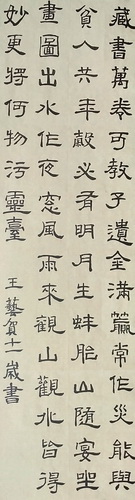 藏書萬卷可教子遺金滿籯常作災能與
貧人共年穀必有明月生蚌胎山隨宴坐
畫圖出水作夜窓風雨來觀山觀水皆得
妙更將何物污靈臺
王藝賀十一歲書